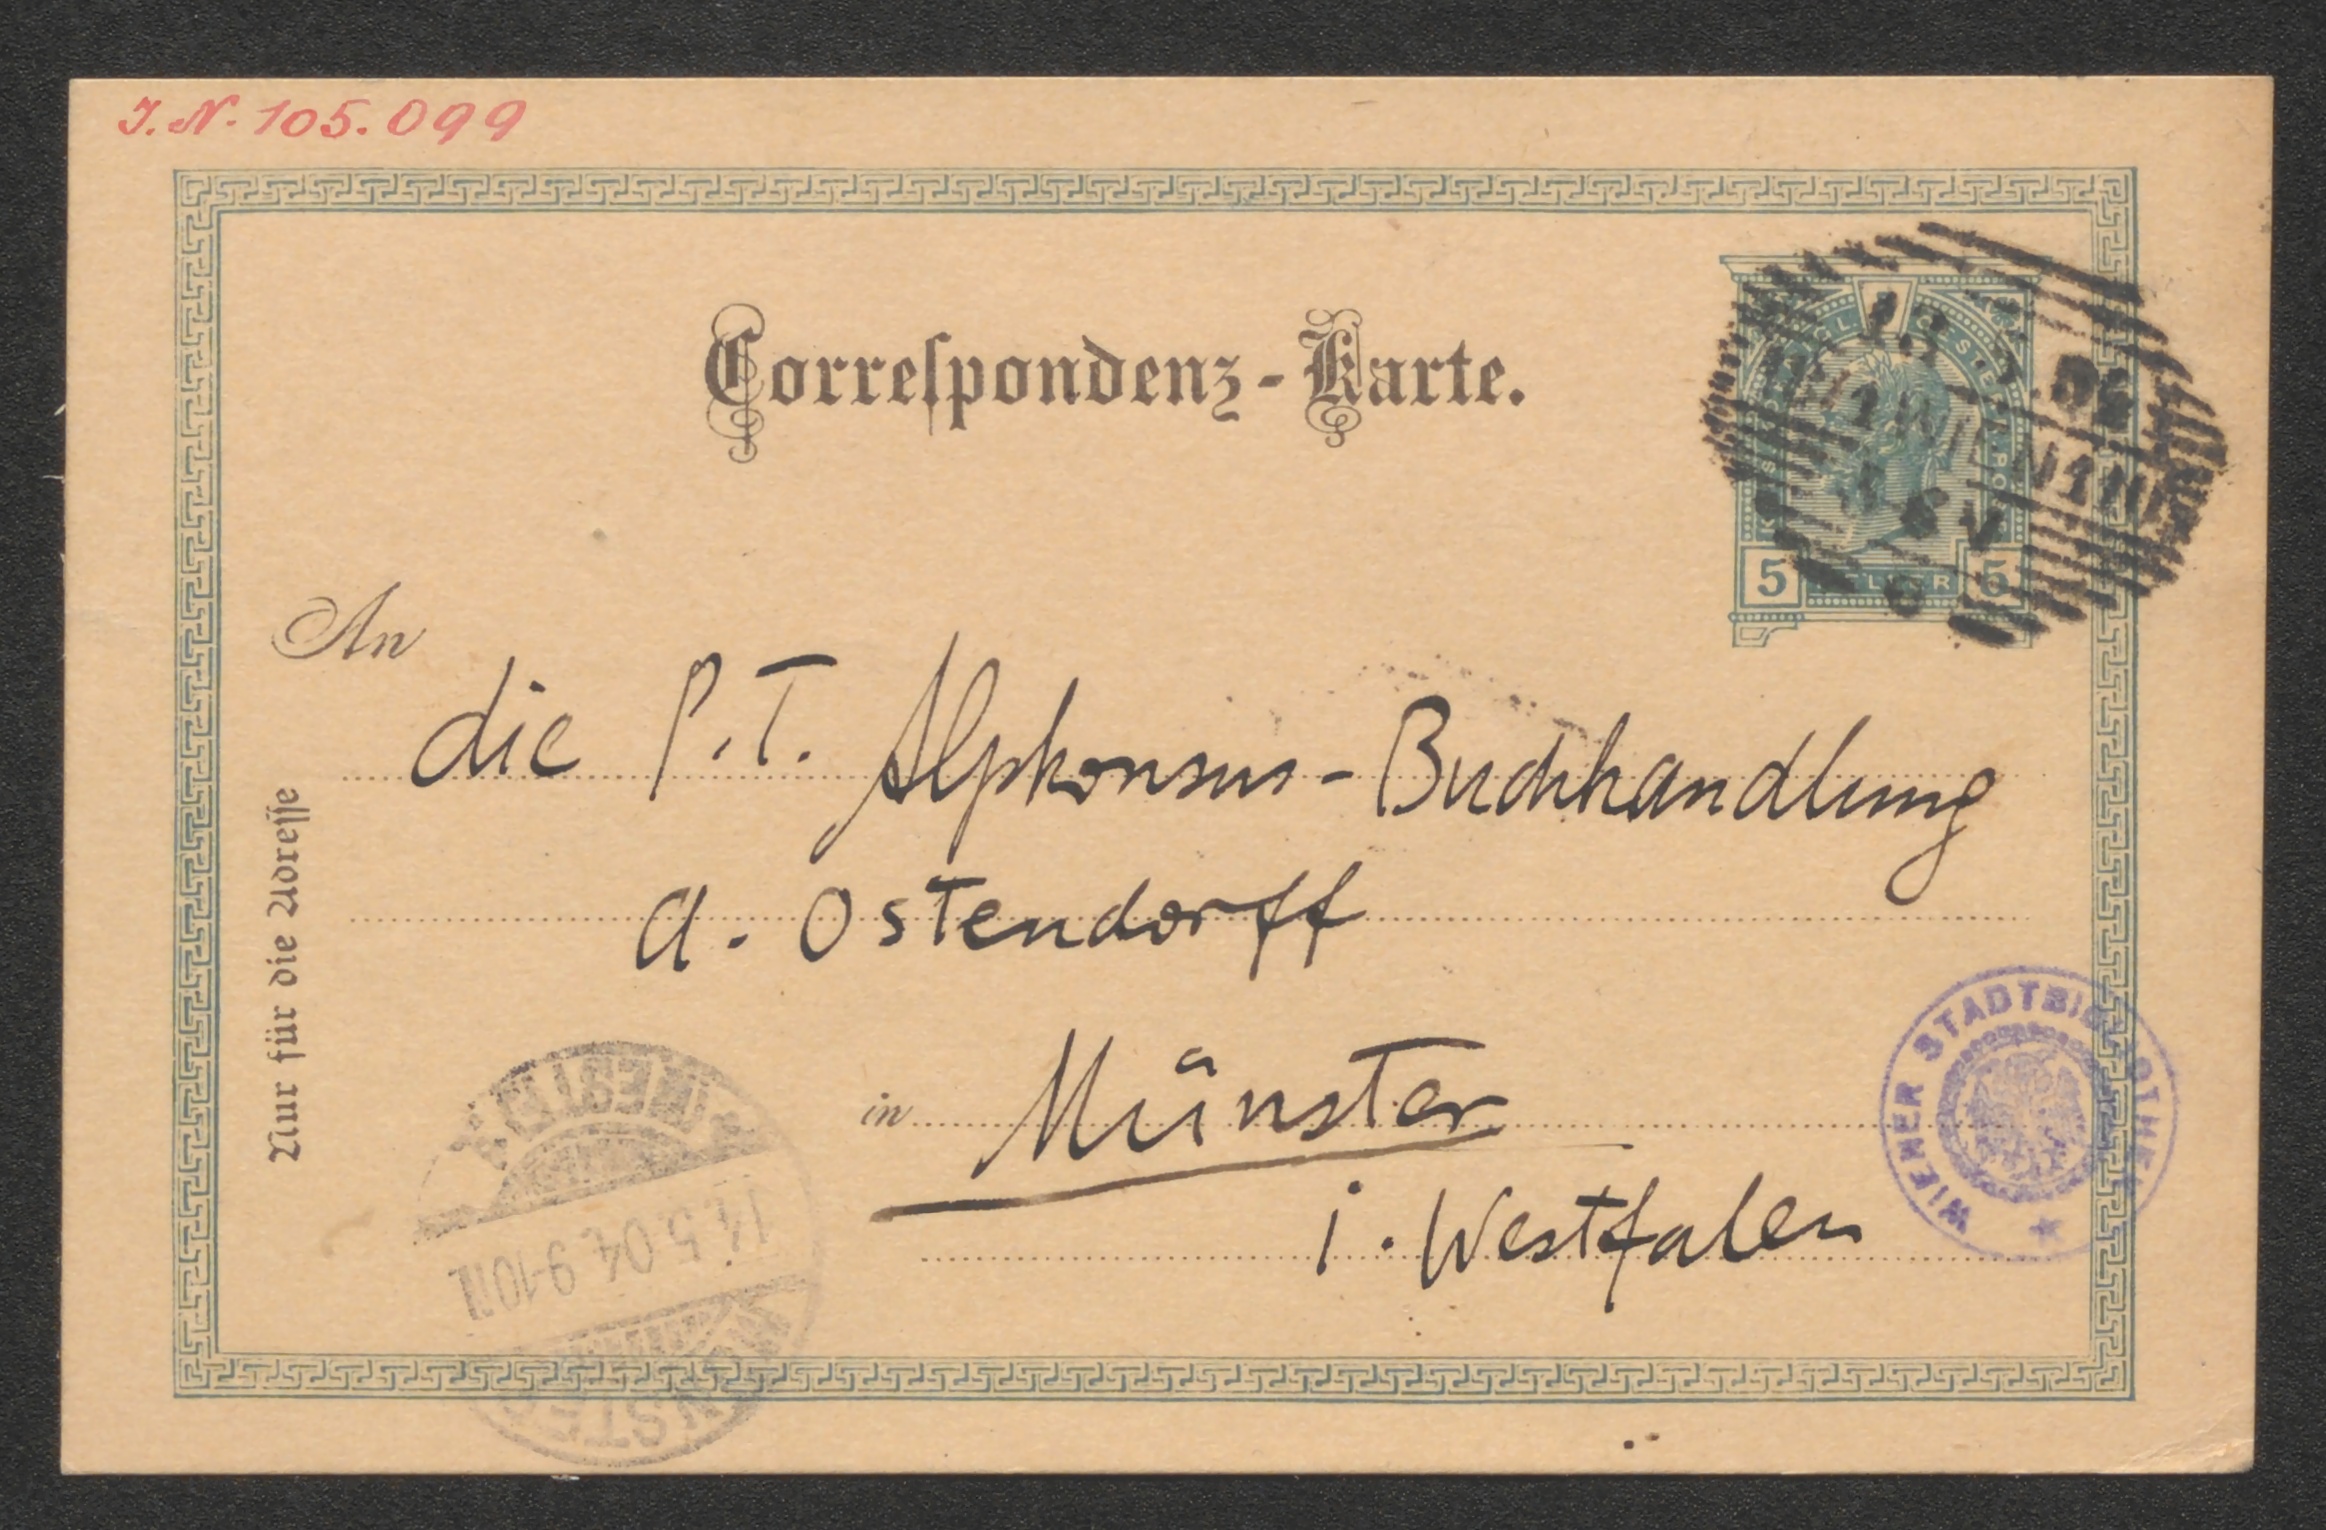 J. N. 105.099
Correspondenz-Karte.
5 5
An
die P. T. Alphonsus-Buchhandlung
A. Ostendorff
in Münster
i. Westfalen
Nur für die Adresse
WIENER STADTBIBLIOTHEK
14.5.04. 9-10